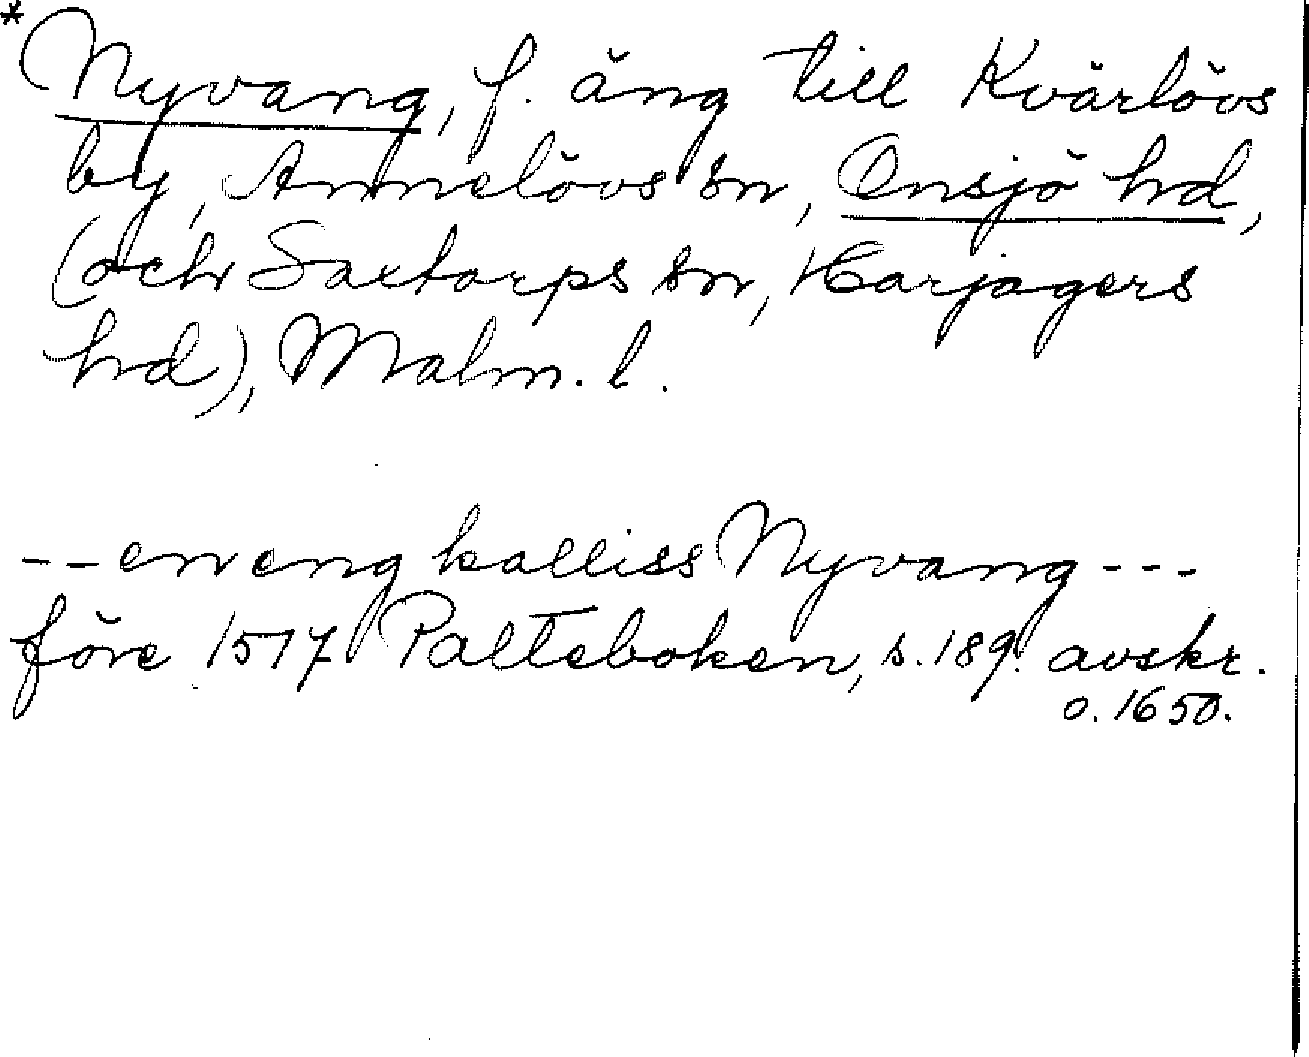 *Nyvang, f. äng till Kvärlövs
by, Annelövs sn, Onsjö hd,
(och Saxtorps sn, Harjagers
hd), Malm. l.
-- en eng kalliss Nyvang ---
före 1517 Palteboken, s. 189. avskr.
o. 1650.